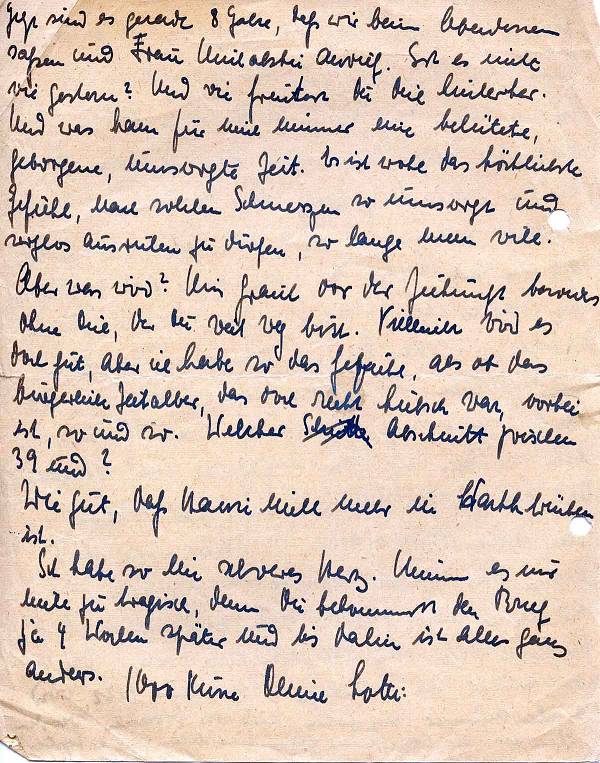 Jetzt sind es gerade 8 Jahre, daß wir beim Abendessen
saßen und Frau anrief. Ist es nicht
wie gestern? Und wie freutest Du Dich hinterher.
Und was kam für mich immer eine behütete,
geborgene, umsorgte Zeit. Es ist wohl das köstlichste
Gefühl, nach solchen Schmerzen so umsorgt und
sorglos ausruhen zu dürfen, so lange man will.
Aber was wird? Mir graut vor der Zukunft besonders
ohne Dich, der Du weit weg bist. Vielleicht wird es
doch gut, aber ich habe so das Gefühl, als ob das
bürgerliche Zeitalter, das doch recht hübsch war, vorbei
ist, so und so. Welcher Abschnitt zwischen
39 und ?
Wie gut, daß Hansi nicht mehr in
ist.
Ich habe so ein schweres Herz. Nimm es nur
nicht zu tragisch, denn Du bekommst den Brief
ja 4 Wochen später und bis dahin ist alles ganz
anders. Deine Lotte